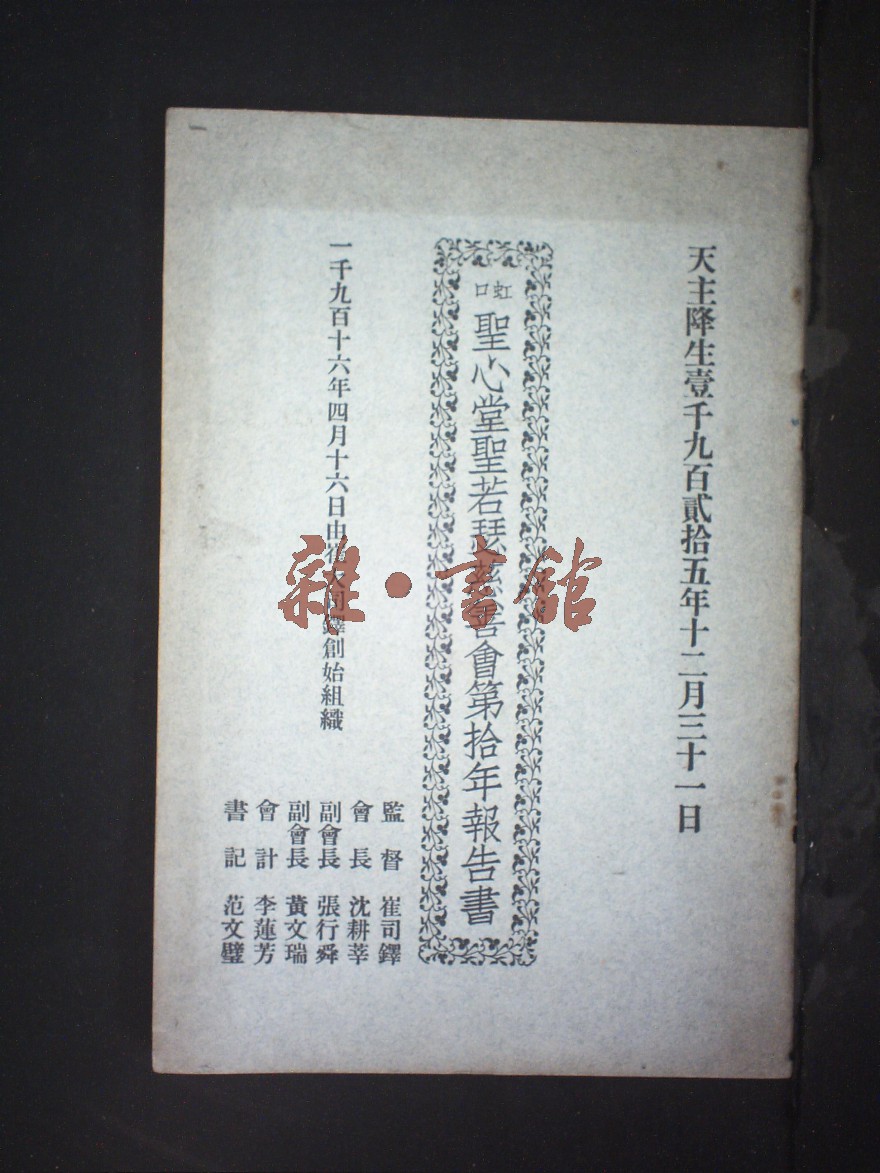 天主降生壹千九百貳拾五年十二月三十一日
虹口
聖心堂聖若瑟慈善會第拾年報告書
一千九百十六年四月十六日由崔大司鐸創始組織
監督 崔司鐸
會長 沈耕莘
副會長 張行舜
副會長 黃文瑞
會計 李蓮芳
書記 范文璧
雜·書館